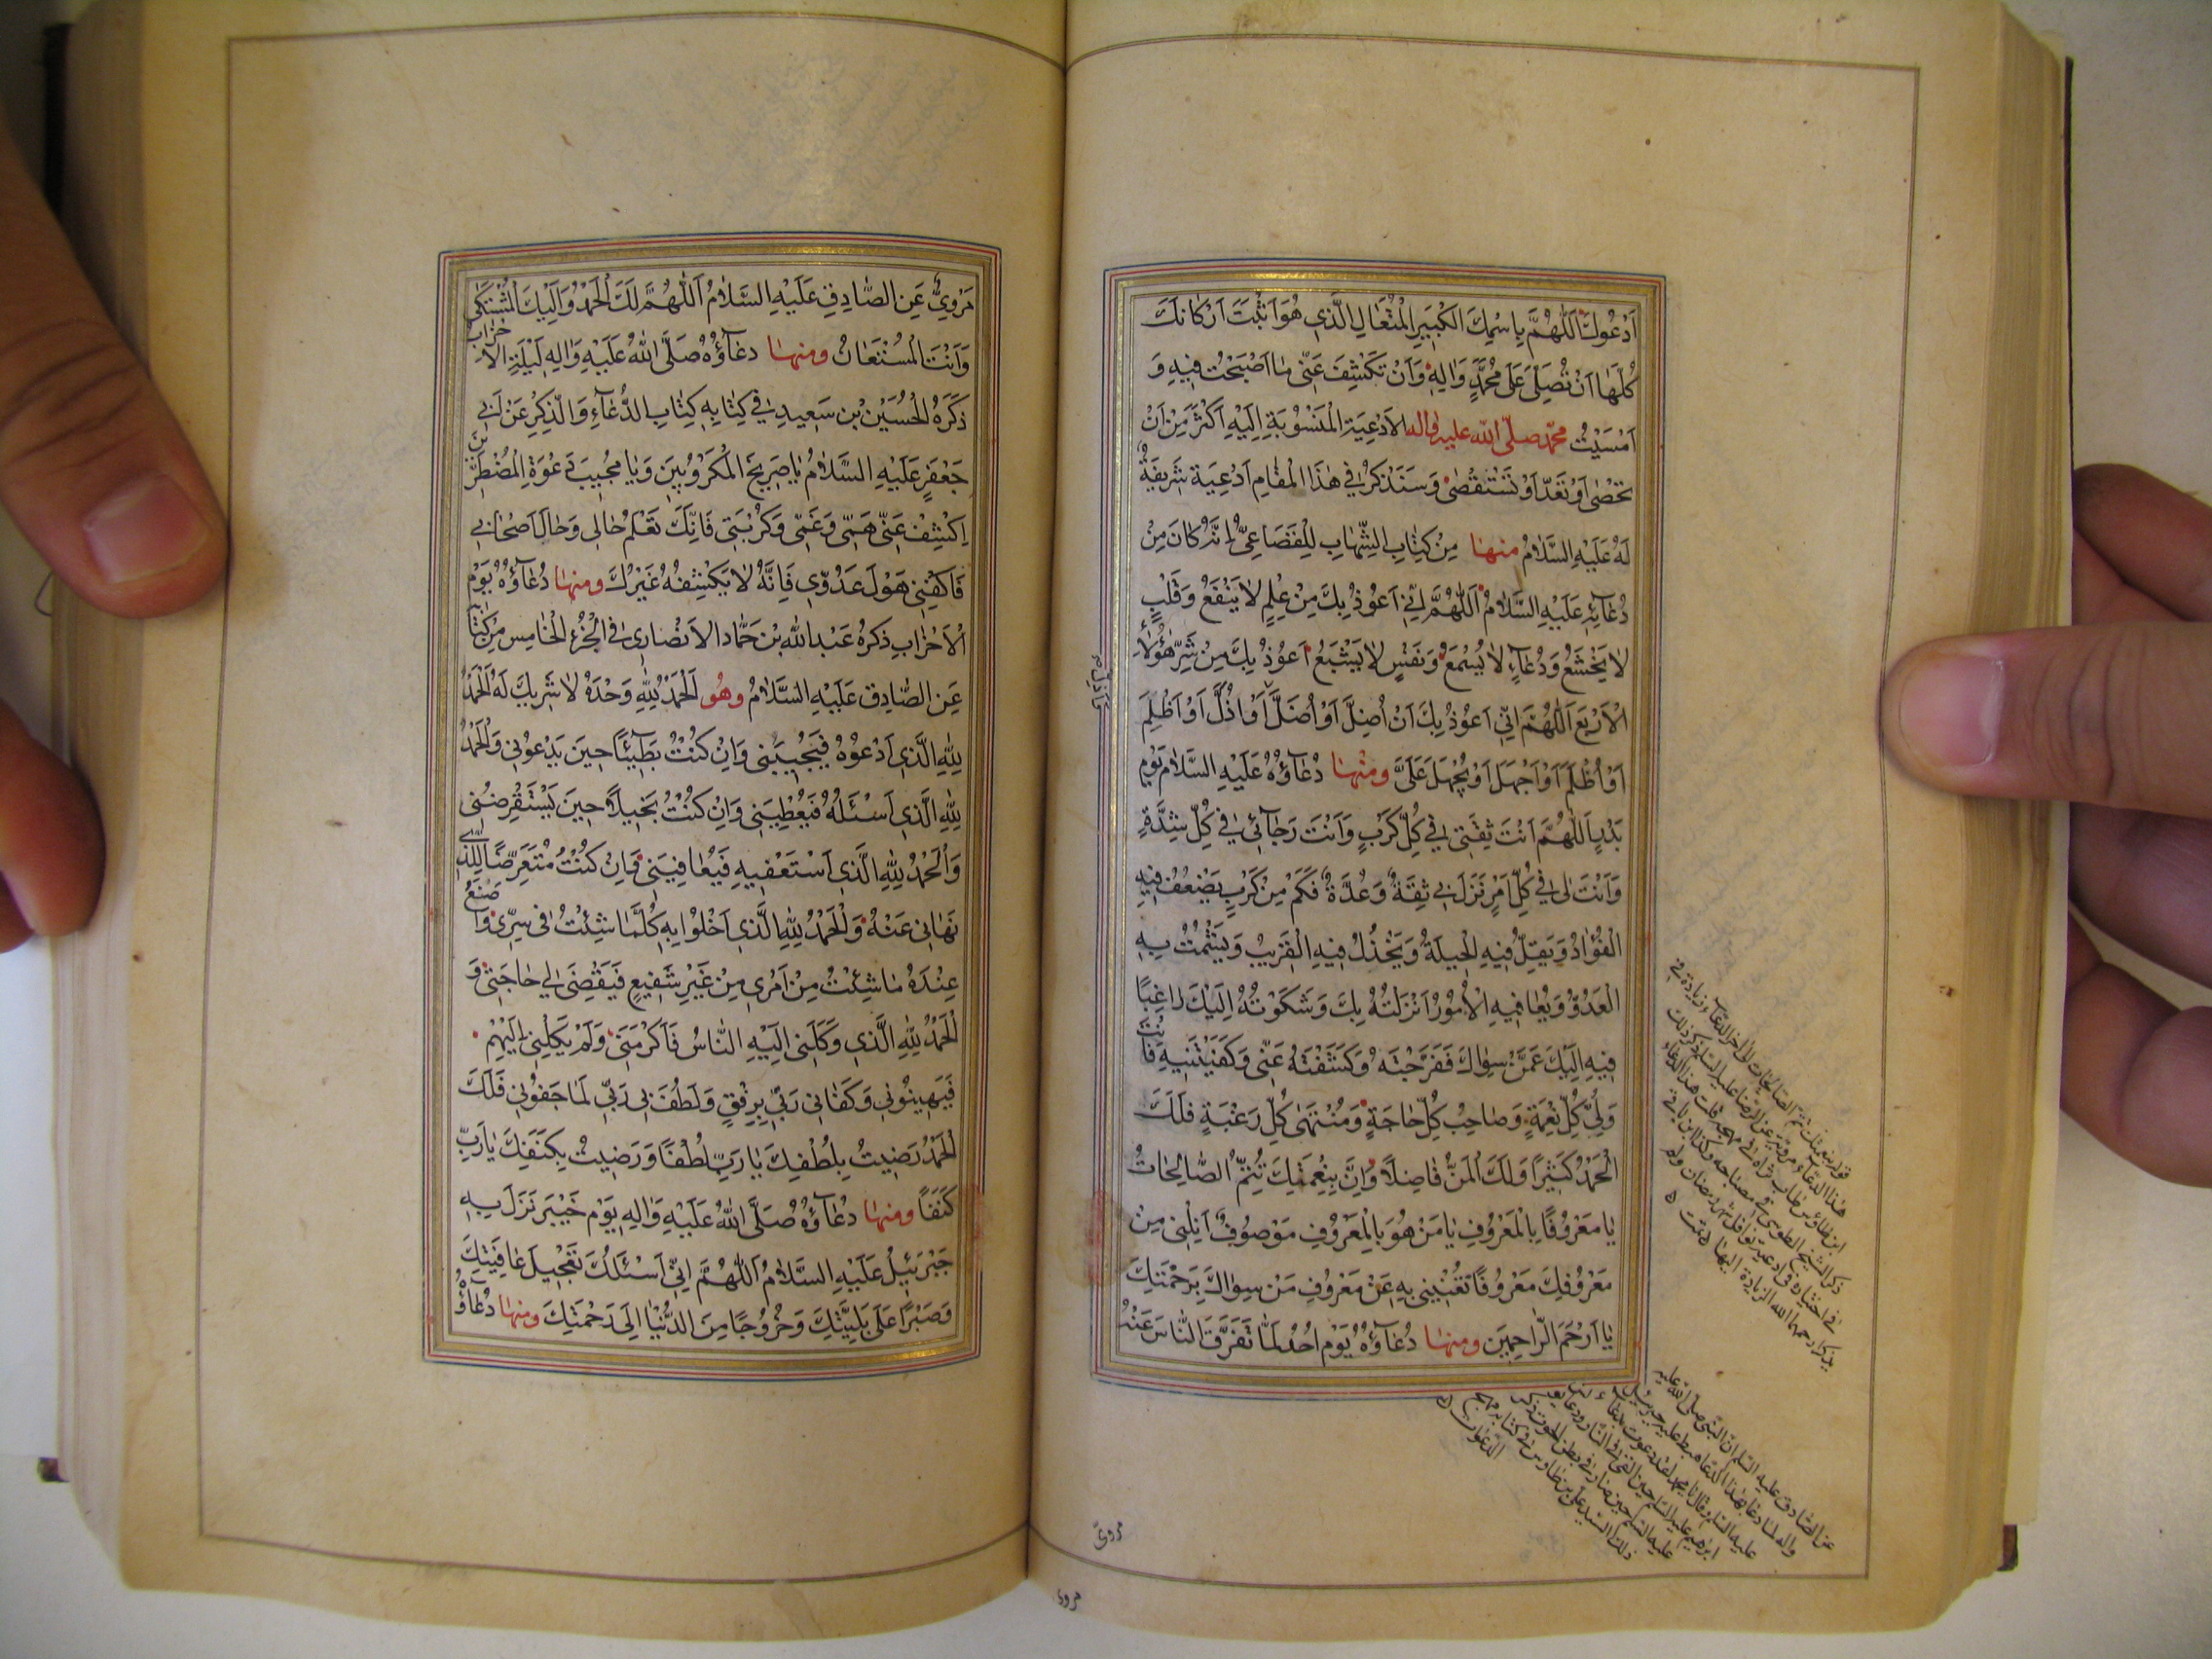 اَدْعُوكَ اَللّٰهُمَّ بِاسْمِكَ الْكَبِيرِ الْمُتَعَالِ الَّذِي هُوَ اَثْبَتَ اَرْكَانَكَ
كُلَّهَا اَنْ تُصَلِّيَ عَلَى مُحَمَّدٍ وَالِهِ وَاَنْ تَكْشِفَ عَنِّي مَا اَصْبَحْتُ فِيهِ وَ
اَمْسَيْتُ محمّد صلّى الله عليه واله الاَدْعِيَةِ الْمَنْسُوبَةِ اِلَيْهِ اَكْثَرُ مِنْ اَنْ
تُحْصٰى اَوْ تُعَدَّ اَوْ تُسْتَقْصٰى وَسَنَذْكُرُ فِي هٰذَا الْمَقَامِ اَدْعِيَةً شَرِيفَةً
لَهُ عَلَيْهِ السَّلَامُ منها مِنْ كِتَابِ الشِّهَابِ لِلْقَضَاعِيِّ اِنَّهُ كَانَ مِنْ
دُعَائِهِ عَلَيْهِ السَّلَامُ اَللّٰهُمَّ اِنِّي اَعُوذُ بِكَ مِنْ عِلْمٍ لَا يَنْفَعُ وَقَلْبٍ
لَا يَخْشَعُ وَدُعَاءٍ لَا يُسْمَعُ وَنَفْسٍ لَا يَشْبَعُ اَعُوذُ بِكَ مِنْ شَرِّ هٰؤُلَاءِ
الْاَرْبَعِ اَللّٰهُمَّ اِنِّي اَعُوذُ بِكَ اَنْ اُضِلَّ اَوْ اُضَلَّ اَوْ اُذَلَّ اَوْ اَظْلِمَ
اَوْ اُظْلَمَ اَوْ اَجْهَلَ اَوْ يُجْهَلَ عَلَيَّ ومنها دُعَاؤُهُ عَلَيْهِ السَّلَامُ يَوْمَ
بَدْرٍ اَللّٰهُمَّ اَنْتَ ثِقَتِي فِي كُلِّ كَرْبٍ وَاَنْتَ رَجَائِي فِي كُلِّ شِدَّةٍ
وَاَنْتَ لِي فِي كُلِّ اَمْرٍ نَزَلَ بِي ثِقَةٌ وَعُدَّةٌ فَكَمْ مِنْ كَرْبٍ يَضْعُفُ فِيهِ
الْفُؤَادُ وَيَقِلُّ فِيهِ الْحِيلَةُ وَيَخْذُلُ فِيهِ الْقَرِيبُ وَيَشْمَتُ بِهِ
الْعَدُوُّ وَيُعَافِيهِ الْاُمُورُ اَنْزَلْتُهُ بِكَ وَشَكَوْتُهُ اِلَيْكَ رَاغِبًا
فِيهِ اِلَيْكَ عَمَّنْ سِوَاكَ فَفَرَّجْتَهُ وَكَشَفْتَهُ عَنِّي وَكَفَيْتَنِيهِ فَاَنْتَ
وَلِيُّ كُلِّ نِعْمَةٍ وَصَاحِبُ كُلِّ حَاجَةٍ وَمُنْتَهَى كُلِّ رَغْبَةٍ فَلَكَ
الْحَمْدُ كَثِيرًا وَلَكَ الْمَنُّ فَاضِلًا وَاِنَّ بِنِعْمَتِكَ تُتِمُّ الصَّالِحَاتُ
يَا مَعْرُوفًا بِالْمَعْرُوفِ يَا مَنْ هُوَ بِالْمَعْرُوفِ مَوْصُوفٌ اَنِلْنِي مِنْ
مَعْرُوفِكَ مَعْرُوفًا تُغْنِينِي بِهِ عَنْ مَعْرُوفِ مَنْ سِوَاكَ بِرَحْمَتِكَ
يَا اَرْحَمَ الرَّاحِمِينَ ومنها دُعَاؤُهُ يَوْمَ اُحُدٍ لَمَّا تَفَرَّقَ النَّاسُ عَنْهُ
عن الصّادق عليه السّلم انّ النّبيّ صلّى الله عليه
واله لمّا دعا بهذا الدّعا هبط عليه جبرئيل
عليه السّلم وقال يا محمد لقد دعوت بدعاء
ابرهيم عليه السّلم حين القي في النّار ودعا به يونس
عليه السّلم حين صار في بطن الحوت ذكر
ذلك السيّد علي بن طاوس في كتابه مهج
الدّعوات
مروىّ
مروى
مَرْوِيٌّ عَنِ الصَّادِقِ عَلَيْهِ السَّلَامُ اَللّٰهُمَّ لَكَ الْحَمْدُ وَاِلَيْكَ الْمُشْتَكٰى
وَاَنْتَ الْمُسْتَعَانُ ومنها دعَاؤُهُ صَلَّى اللهُ عَلَيْهِ وَالِهِ لَيْلَةَ الْاَحْزَابِ
ذَكَرَهُ الْحُسَيْنُ بْنُ سَعِيدٍ فِي كِتَابِهِ كِتَابِ الدُّعَاءِ وَالذِّكْرِ عَنْ اَبِي
جَعْفَرٍ عَلَيْهِ السَّلَامُ يَا صَرِيخَ الْمَكْرُوبِينَ وَيَا مُجِيبَ دَعْوَةِ الْمُضْطَرِّينَ
اِكْشِفْ عَنِّي هَمِّي وَغَمِّي وَكُرْبَتِي فَاِنَّكَ تَعْلَمُ حَالِي وَحَالَ اَصْحَابِي
فَاكْفِنِي هَوْلَ عَدُوِّي فَاِنَّهُ لَا يَكْشِفُهُ غَيْرُكَ ومنها دُعَاؤُهُ يَوْمَ
الْاَحْزَابِ ذَكَرَهُ عَبْدُ اللهِ بْنُ حَمَّادٍ الْاَنْصَارِي فِي الْجُزْءِ الْخَامِسِ مِنْ كِتَابِهِ
عَنِ الصَّادِقِ عَلَيْهِ السَّلَامُ وهُو اَلْحَمْدُ لِلّٰهِ وَحْدَهُ لَا شَرِيكَ لَهُ الْحَمْدُ
لِلّٰهِ الَّذِي اَدْعُوهُ فَيُجِيبُنِي وَاِنْ كُنْتُ بَطِيئًا حِينَ يَدْعُونِي وَالْحَمْدُ
لِلّٰهِ الَّذِي اَسْئَلُهُ فَيُعْطِينِي وَاِنْ كُنْتُ بَخِيلًا حِينَ يَسْتَقْرِضُنِي
وَالْحَمْدُ لِلّٰهِ الَّذِي اَسْتَعْفِيهِ فَيُعَافِينِي وَاِنْ كُنْتُ مُتَعَرِّضًا لِلَّذِي
نَهَانِي عَنْهُ وَالْحَمْدُ لِلّٰهِ الَّذِي اَخْلُوا بِهِ كُلَّمَا شِئْتُ فِي سِرِّي وَاَصْنَعُ
عِنْدَهُ مَا شِئْتُ مِنْ اَمْرِي مِنْ غَيْرِ شَفِيعٍ فَيَقْضِي لِي حَاجَتِي وَ
الْحَمْدُ لِلّٰهِ الَّذِي وَكَلَنِي اِلَيْهِ النَّاسُ فَاَكْرَمَنِي وَلَمْ يَكِلْنِي اِلَيْهِمْ
فَيُهِينُونِي وَكَفَانِي رَبِّي بِرِفْقٍ وَلَطُفَ بِي رَبِّي لَمَا جَفَوْنِي فَلَكَ
الْحَمْدُ رَضِيتُ بِلُطْفِكَ يَا رَبِّ لُطْفًا وَرَضِيتُ بِكَنَفِكَ يَا رَبِّ
كَنَفًا ومنها دُعَاؤُهُ صَلَّى اللهُ عَلَيْهِ وَالِهِ يَوْمَ خَيْبَرَ نَزَلَ بِهِ
جَبْرَئِيلُ عَلَيْهِ السَّلَامُ اَللّٰهُمَّ اِنِّي اَسْئَلُكَ تَعْجِيلَ عَافِيَتِكَ
وَصَبْرًا عَلَى بَلِيَّتِكَ وَخُرُوجًا مِنَ الدُّنْيَا اِلَى رَحْمَتِكَ ومنها دُعَاؤُهُ